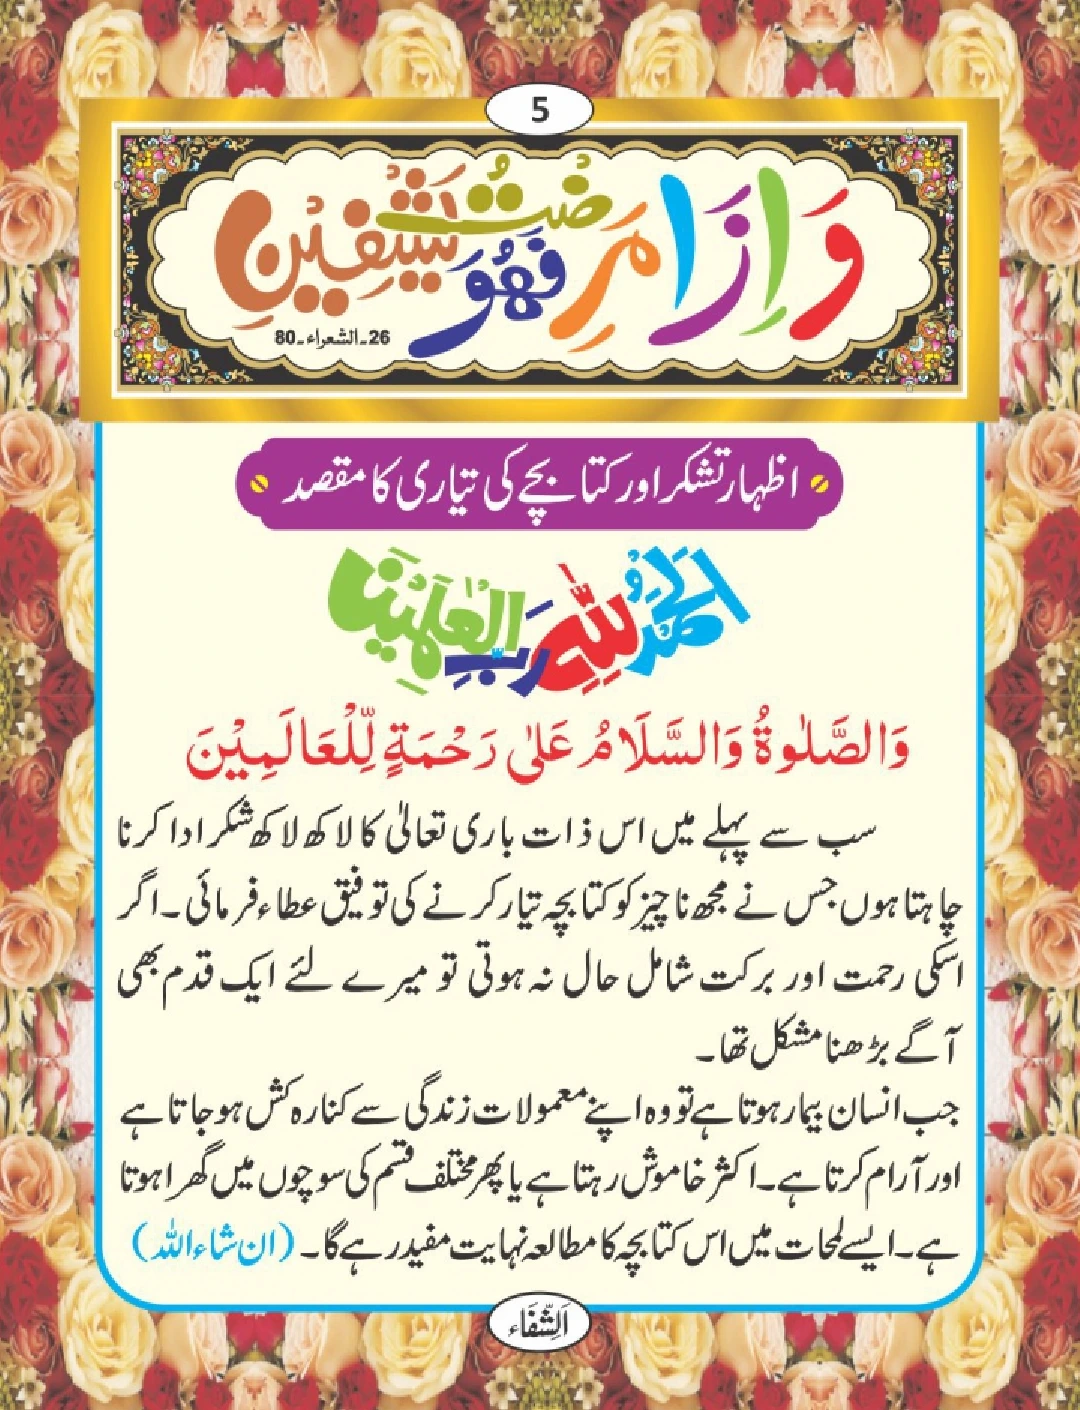 5
وَ اِذَا مَرِضْتُ فَهُوَ یَشْفِیْنِ
26۔الشعراء۔80
اظہار تشکر اور کتابچے کی تیاری کا مقصد
اَلْحَمْدُ لِلّٰہِ رَبِّ الْعٰلَمِیْنَ
وَالصَّلٰوةُ وَالسَّلَامُ عَلٰی رَحْمَةٍ لِّلْعَالَمِیْنَ
سب سے پہلے میں اس ذات باری تعالیٰ کا لاکھ لاکھ شکر ادا کرنا
چاہتا ہوں جس نے مجھ ناچیز کو کتابچہ تیار کرنے کی توفیق عطاء فرمائی۔ اگر
اسکی رحمت اور برکت شامل حال نہ ہوتی تو میرے لئے ایک قدم بھی
آگے بڑھنا مشکل تھا۔
جب انسان بیمار ہوتا ہے تو وہ اپنے معمولات زندگی سے کنارہ کش ہو جاتا ہے
اور آرام کرتا ہے۔ اکثر خاموش رہتا ہے یا پھر مختلف قسم کی سوچوں میں گھرا ہوتا
ہے۔ ایسے لمحات میں اس کتابچہ کا مطالعہ نہایت مفید رہے گا۔ (ان شاء اللہ)
اَلشِّفَاء